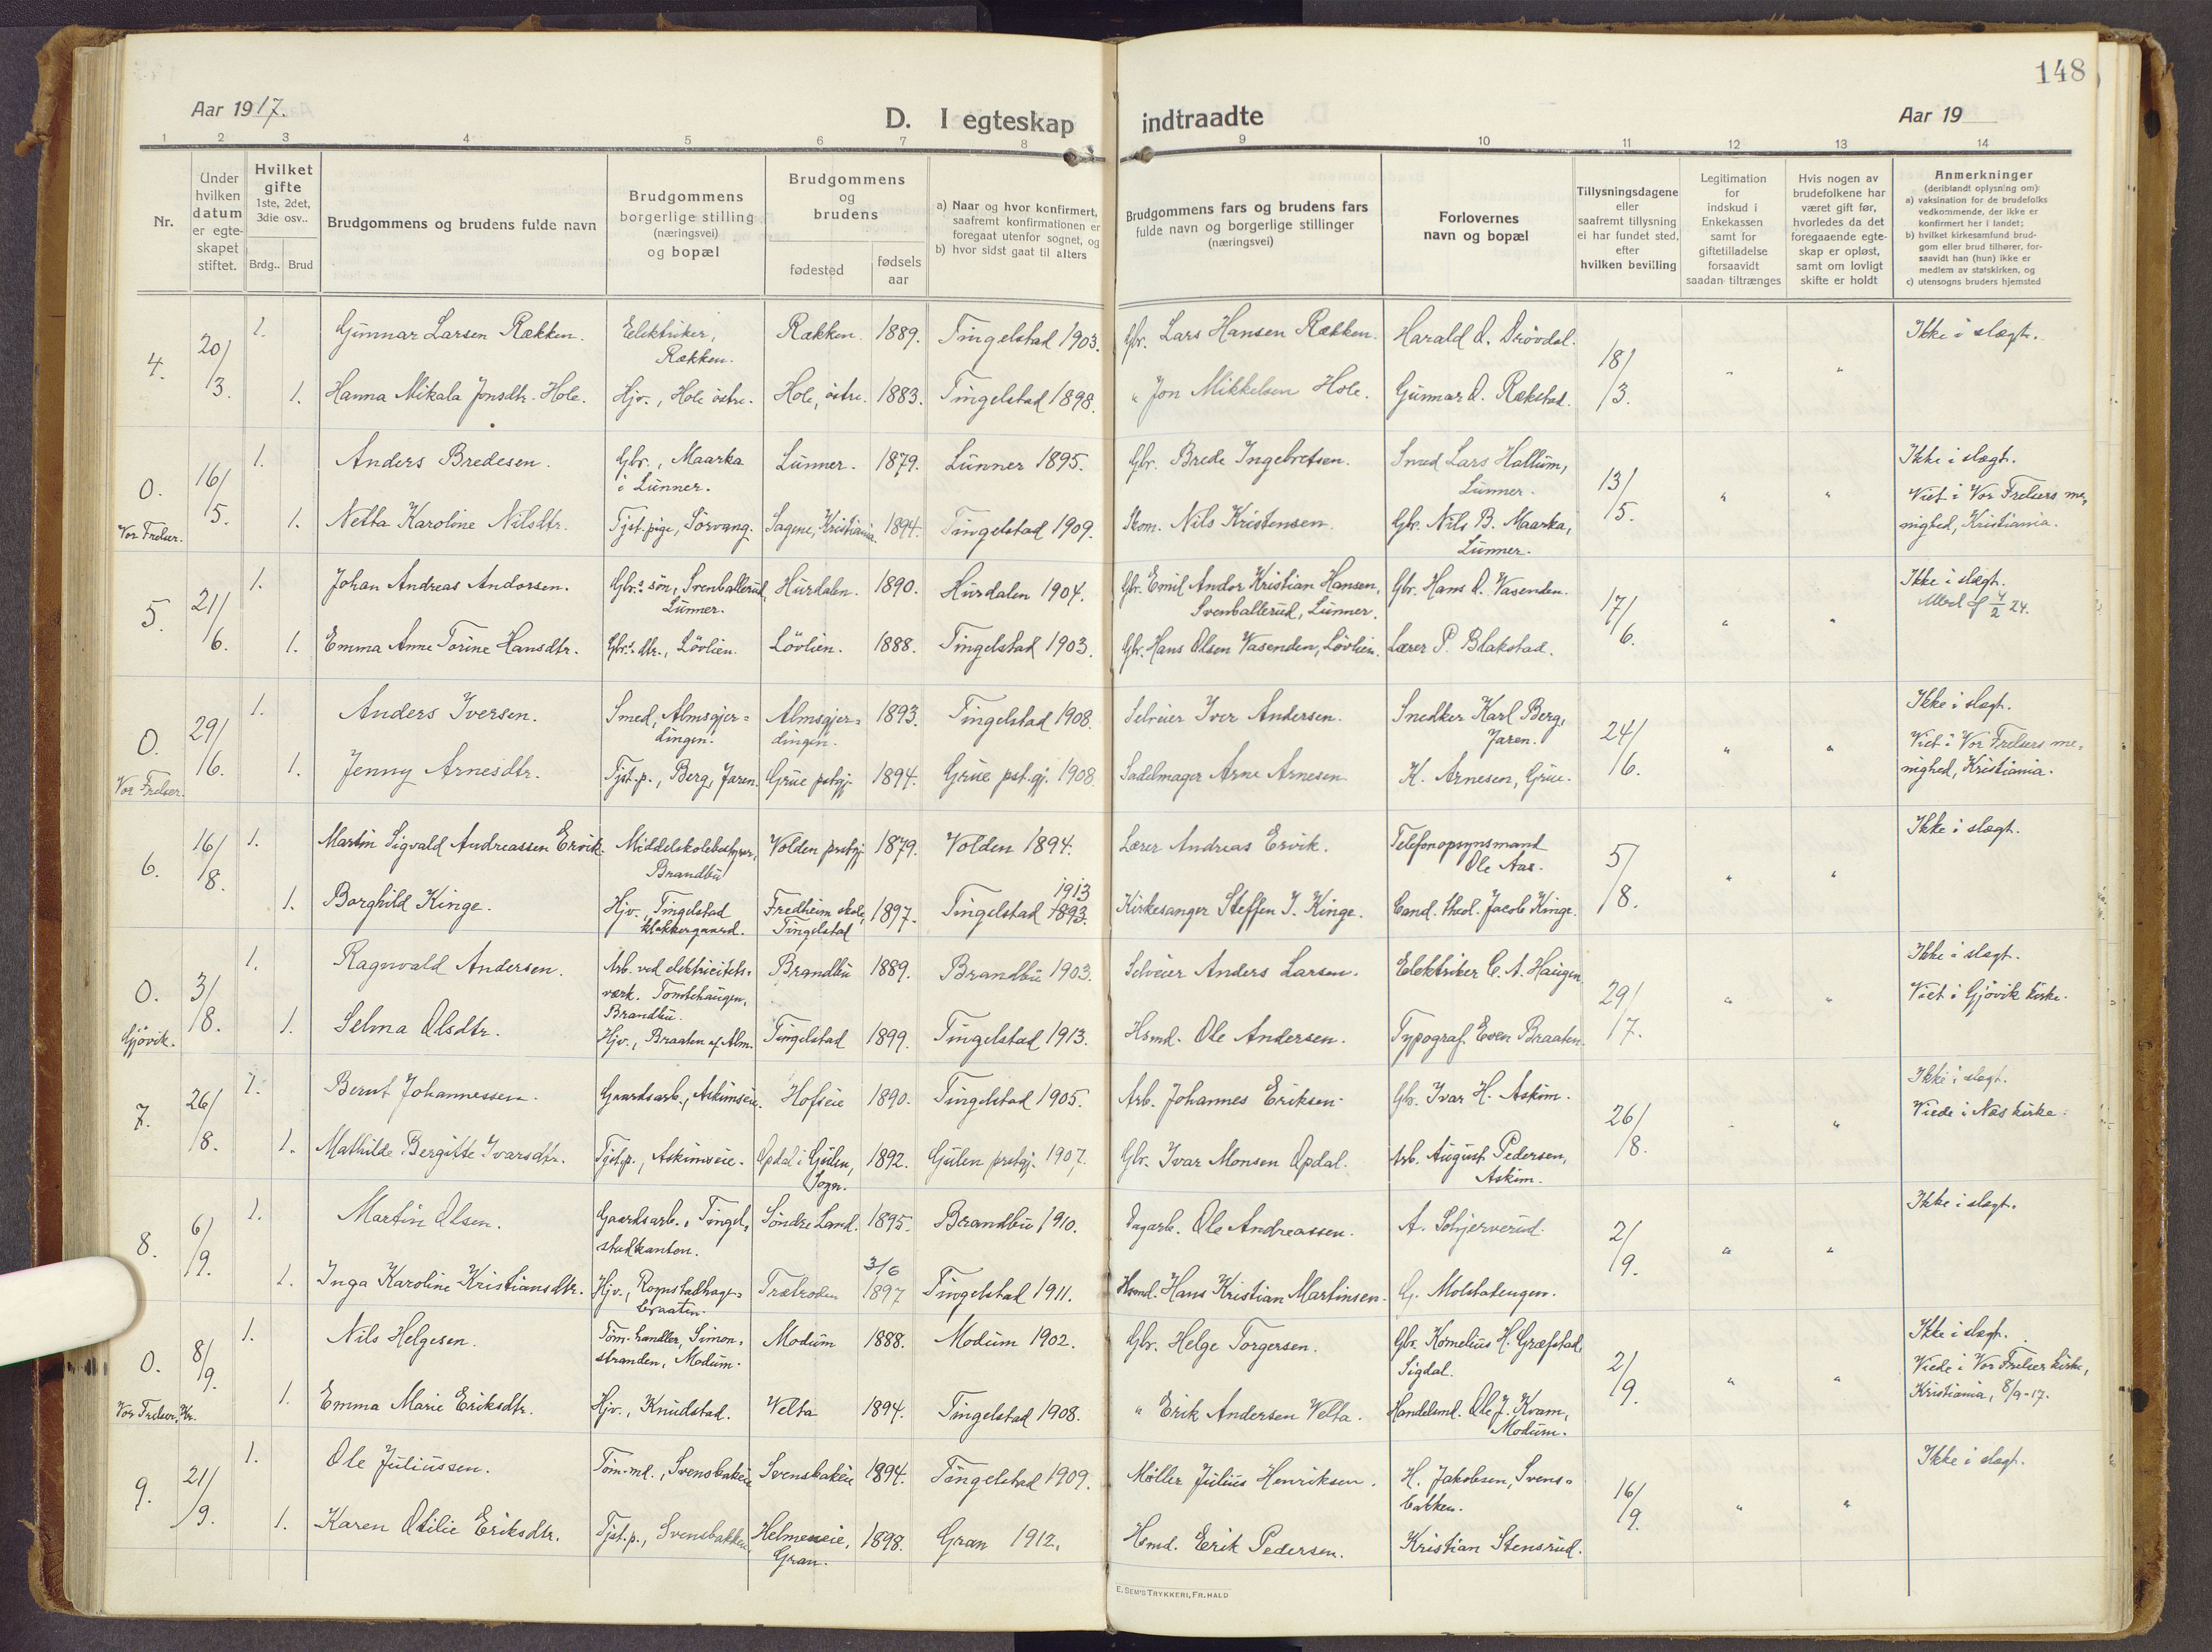 148
Aar 1917.
D. I egteskap indtraadte
Aar 19
1 2 3 4 5 6 7 8 9 10 11 12 13 14
Nr.
Under hvilken datum er egteskapet stiftet.
Hvilket gifte 1ste, 2det, 3die osv..
Brdg.. Brud
Brudgommens og brudens fulde navn
Brudgommens borgerlige stilling (næringsvei) og bopæl
Brudgommens og brudens
fødested
fødsels aar
a) Naar og hvor konfirmert, saafremt konfirmationen er foregaat utenfor sognet, og
b) hvor sidst gaat til alters
Brudgommens fars og brudens fars fulde navn og borgerlige stillinger (næringsvei)
Forlovernes navn og bopæl
Tillysningsdagene eller saafremt tillysning ei har fundet sted, efter hvilken bevilling
Legitimation for indskud i Enkekassen samt for giftetilladelse forsaavidt saadan tiltrænges
Hvis nogen av brudefolkene har været gift før, hvorledes da det foregaaende egteskap er opløst, samt om lovligt skifte er holdt
Anmerkninger (deriblandt oplysning om):
a) vaksination for de brudefolks vedkommende, der ikke er konfirmert her i landet;
b) hvilket kirkesamfund brudgom eller brud tilhører, forsaavidt han (hun) ikke er medlem av statskirken, og
c) utensogns bruders hjemsted
4. 20/3. 1. Gunnar Larsen Rækken. Elektriker, Rækken. Rækken. 1889. Tingelstad 1903. Gbr. Lars Hansen Rækken. Harald O. Drövdal. 18/3. Ikke i slægt.
1. Hanna Mikala Jonsdtr. Hole. Hjv., Hole östre. Hole, östre. 1883. Tingelstad 1898. " Jon Mikkelsen Hole. Gunnar O. Rækstad. " "
0. Vor Frelser. 16/5. 1. Anders Bredesen. Gbr., Maarka i Lunner. Lunner. 1879. Lunner 1895. Gbr. Brede Ingebretsen. Smed Lars Hallum, Lunner. 13/5. " " Ikke i slægt.
1. Netta Karoline Nilsdtr. Tjst.pige, Sörvang. Sagene, Kristiania. 1894. Tingelstad 1909. Skom. Nils Kristensen. Gbr. Nils B. Maarka, Lunner. Viet i Vor Frelsers menighed, Kristiania.
5. 21/6. 1. Johan Andreas Andorsen. Gbr.s sön, Svenballerud, Lunner. Hurdalen. 1890. Hurdalen 1904. Gbr. Emil Andor Kristian Hansen, Svenballerud, Lunner. Gbr. Hans O. Vasenden. 17/6. " " Ikke i slægt.
1. Emma Anne Torine Hansdtr. Gbr.s dtr., Lövlien. Lövlien. 1888. Tingelstad 1903. Gbr. Hans Olsen Vasenden, Lövlien. Lærer P. Blakstad.
0. Vor Frelser. 29/6. 1. Anders Iversen. Smed, Almsgjerdingen. Almsgjerdingen. 1893. Tingelstad 1908. Selveier Iver Andersen. Snedker Karl Berg, Jaren. 24/6. " " Ikke i slægt.
1. Jenny Arnesdtr. Tjst.p., Berg, Jaren. Grue pstgj. 1894. Grue pst.gj. 1908. Sadelmager Arne Arnesen. K. Arnesen, Grue. Viet i Vor Frelsers menighed, Kristiania.
6. 16/8. 1. Martin Sigvald Andreassen Ervik. Middelskolebestyrer, Brandbu Volden prstgj. 1879. Volden 1894. Lærer Andreas Ervik. Telefonopsynsmand Ole Aas. 5/8. " " Ikke i slægt.
1. Borghild Kinge. Hjv., Tingelstad klokkergaard. Fredheim skole, Tingelstad 1897. Tingelstad 1893. 1913 Kirkesanger Steffen J. Kinge. Cand. theol. Jacob Kinge.
0. Gjövik. 3/8. 1. Ragnvald Andersen. Arb. ved elektricitetsverk. Tomtehaugen, Brandbu. Brandbu 1889. Brandbu 1903. Selveier Anders Larsen. Elektriker C. A. Haugen. 29/7. " " Ikke i slægt.
1. Selma Olsdtr. Hjv., Braaten af Alm. Tingelstad 1899. Tingelstad 1913. Hsmd. Ole Andersen. Typograf Even Braaten. Viet i Gjövik kirke.
7. 26/8. 1. Bernt Johannessen. Gaardsarb., Askimseie. Hofseie 1890. Tingelstad 1905. Arb. Johannes Eriksen. Gbr. Ivar H. Askim. 26/8. " " Ikke i slægt.
1. Mathilde Bergitte Ivarsdtr. Tjstp., Askimseie. Opdal i Gulen, Sogn. 1892. Gulen prstgj. 1907. Gbr. Ivar Monsen Opdal. Arb. August Pedersen, Askim. Viede i Næs kirke.
8. 6/9. 1. Martin Olsen. Gaardsarb., Tingelstadkanten. Söndre Land. 1895. Brandbu 1910. Dagarb. Ole Andreassen. A. Schjerverud. 2/9. " " Ikke i slægt.
1. Inga Karoline Kristiansdtr. Hjv., Rognstadhagebraaten. Trætroden 3/6 1897 Tingelstad 1911. Hsmd. Hans Kristian Martinsen. G. Molstadengen.
0. Vor Frelser, Kr. 8/9. 1. Nils Helgesen. Töm.handler, Simonstranden, Modum. Modum 1888. Modum 1902. Gbr. Helge Torgersen. Gbr. Kornelius H. Græfstad, Sigdal. 2/9. " " Ikke i slægt.
1. Emma Marie Eriksdtr. Hjv., Knudstad. Velta 1894. Tingelstad 1908. " Erik Andersen Velta. Handelsmd. Ole J. Kvam, Modum. Viede i Vor Frelser kirke, Kristiania, 8/9-17.
9. 21/9. 1. Ole Juliussen. Töm.md., Svensbakeie Svensbakeie 1894. Tingelstad 1909. Møller Julius Henriksen. H. Jakobsen, Svensbakken. 16/9. " " Ikke i slægt.
1. Karen Otilie Eriksdtr. Tjst.p., Svensbakken. Helmeneie, Gran. 1898. Gran 1912. Hsmd. Erik Pedersen. Kristian Stensrud.
E. SEM'S TRYKKERI, FR.HALD